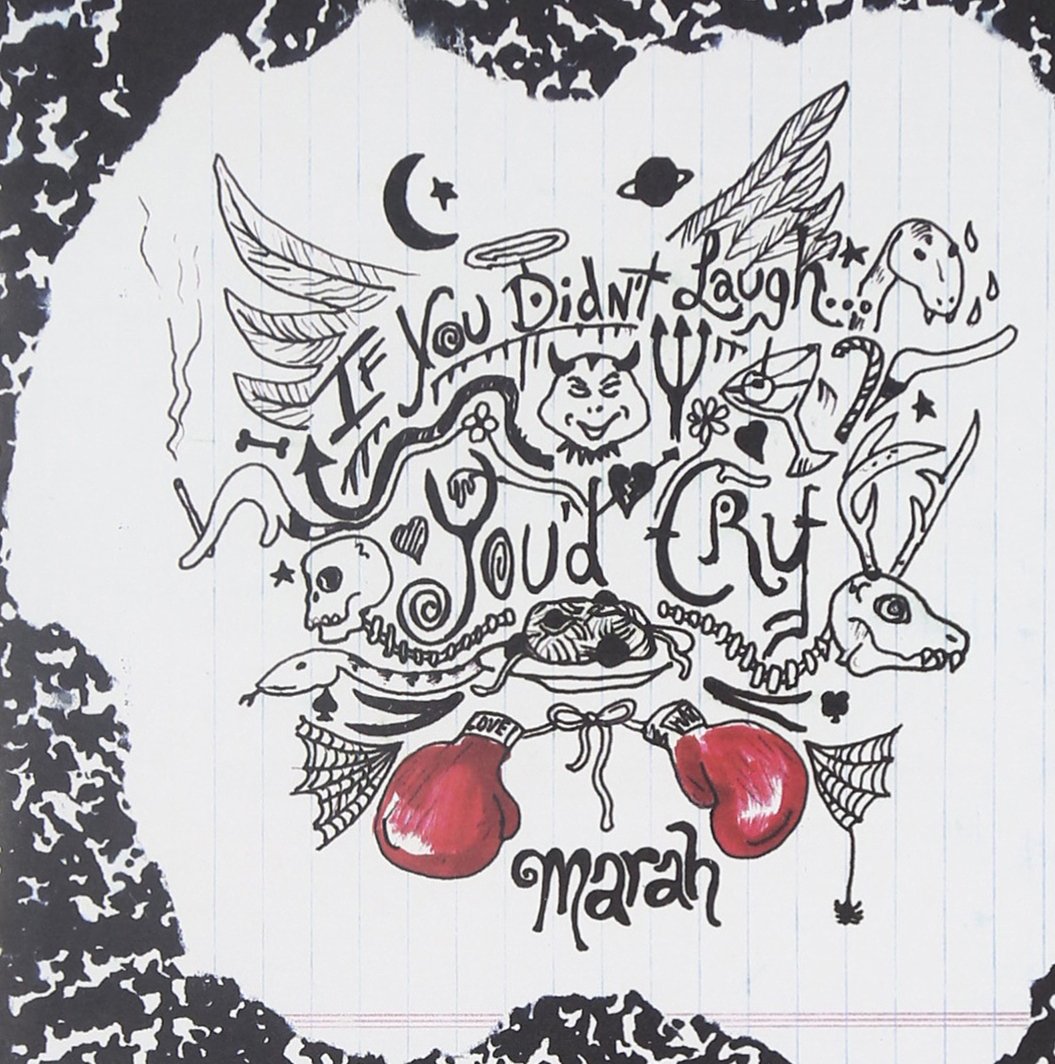 If You Didn't Laugh...
You'd Cry
LOVE
marah